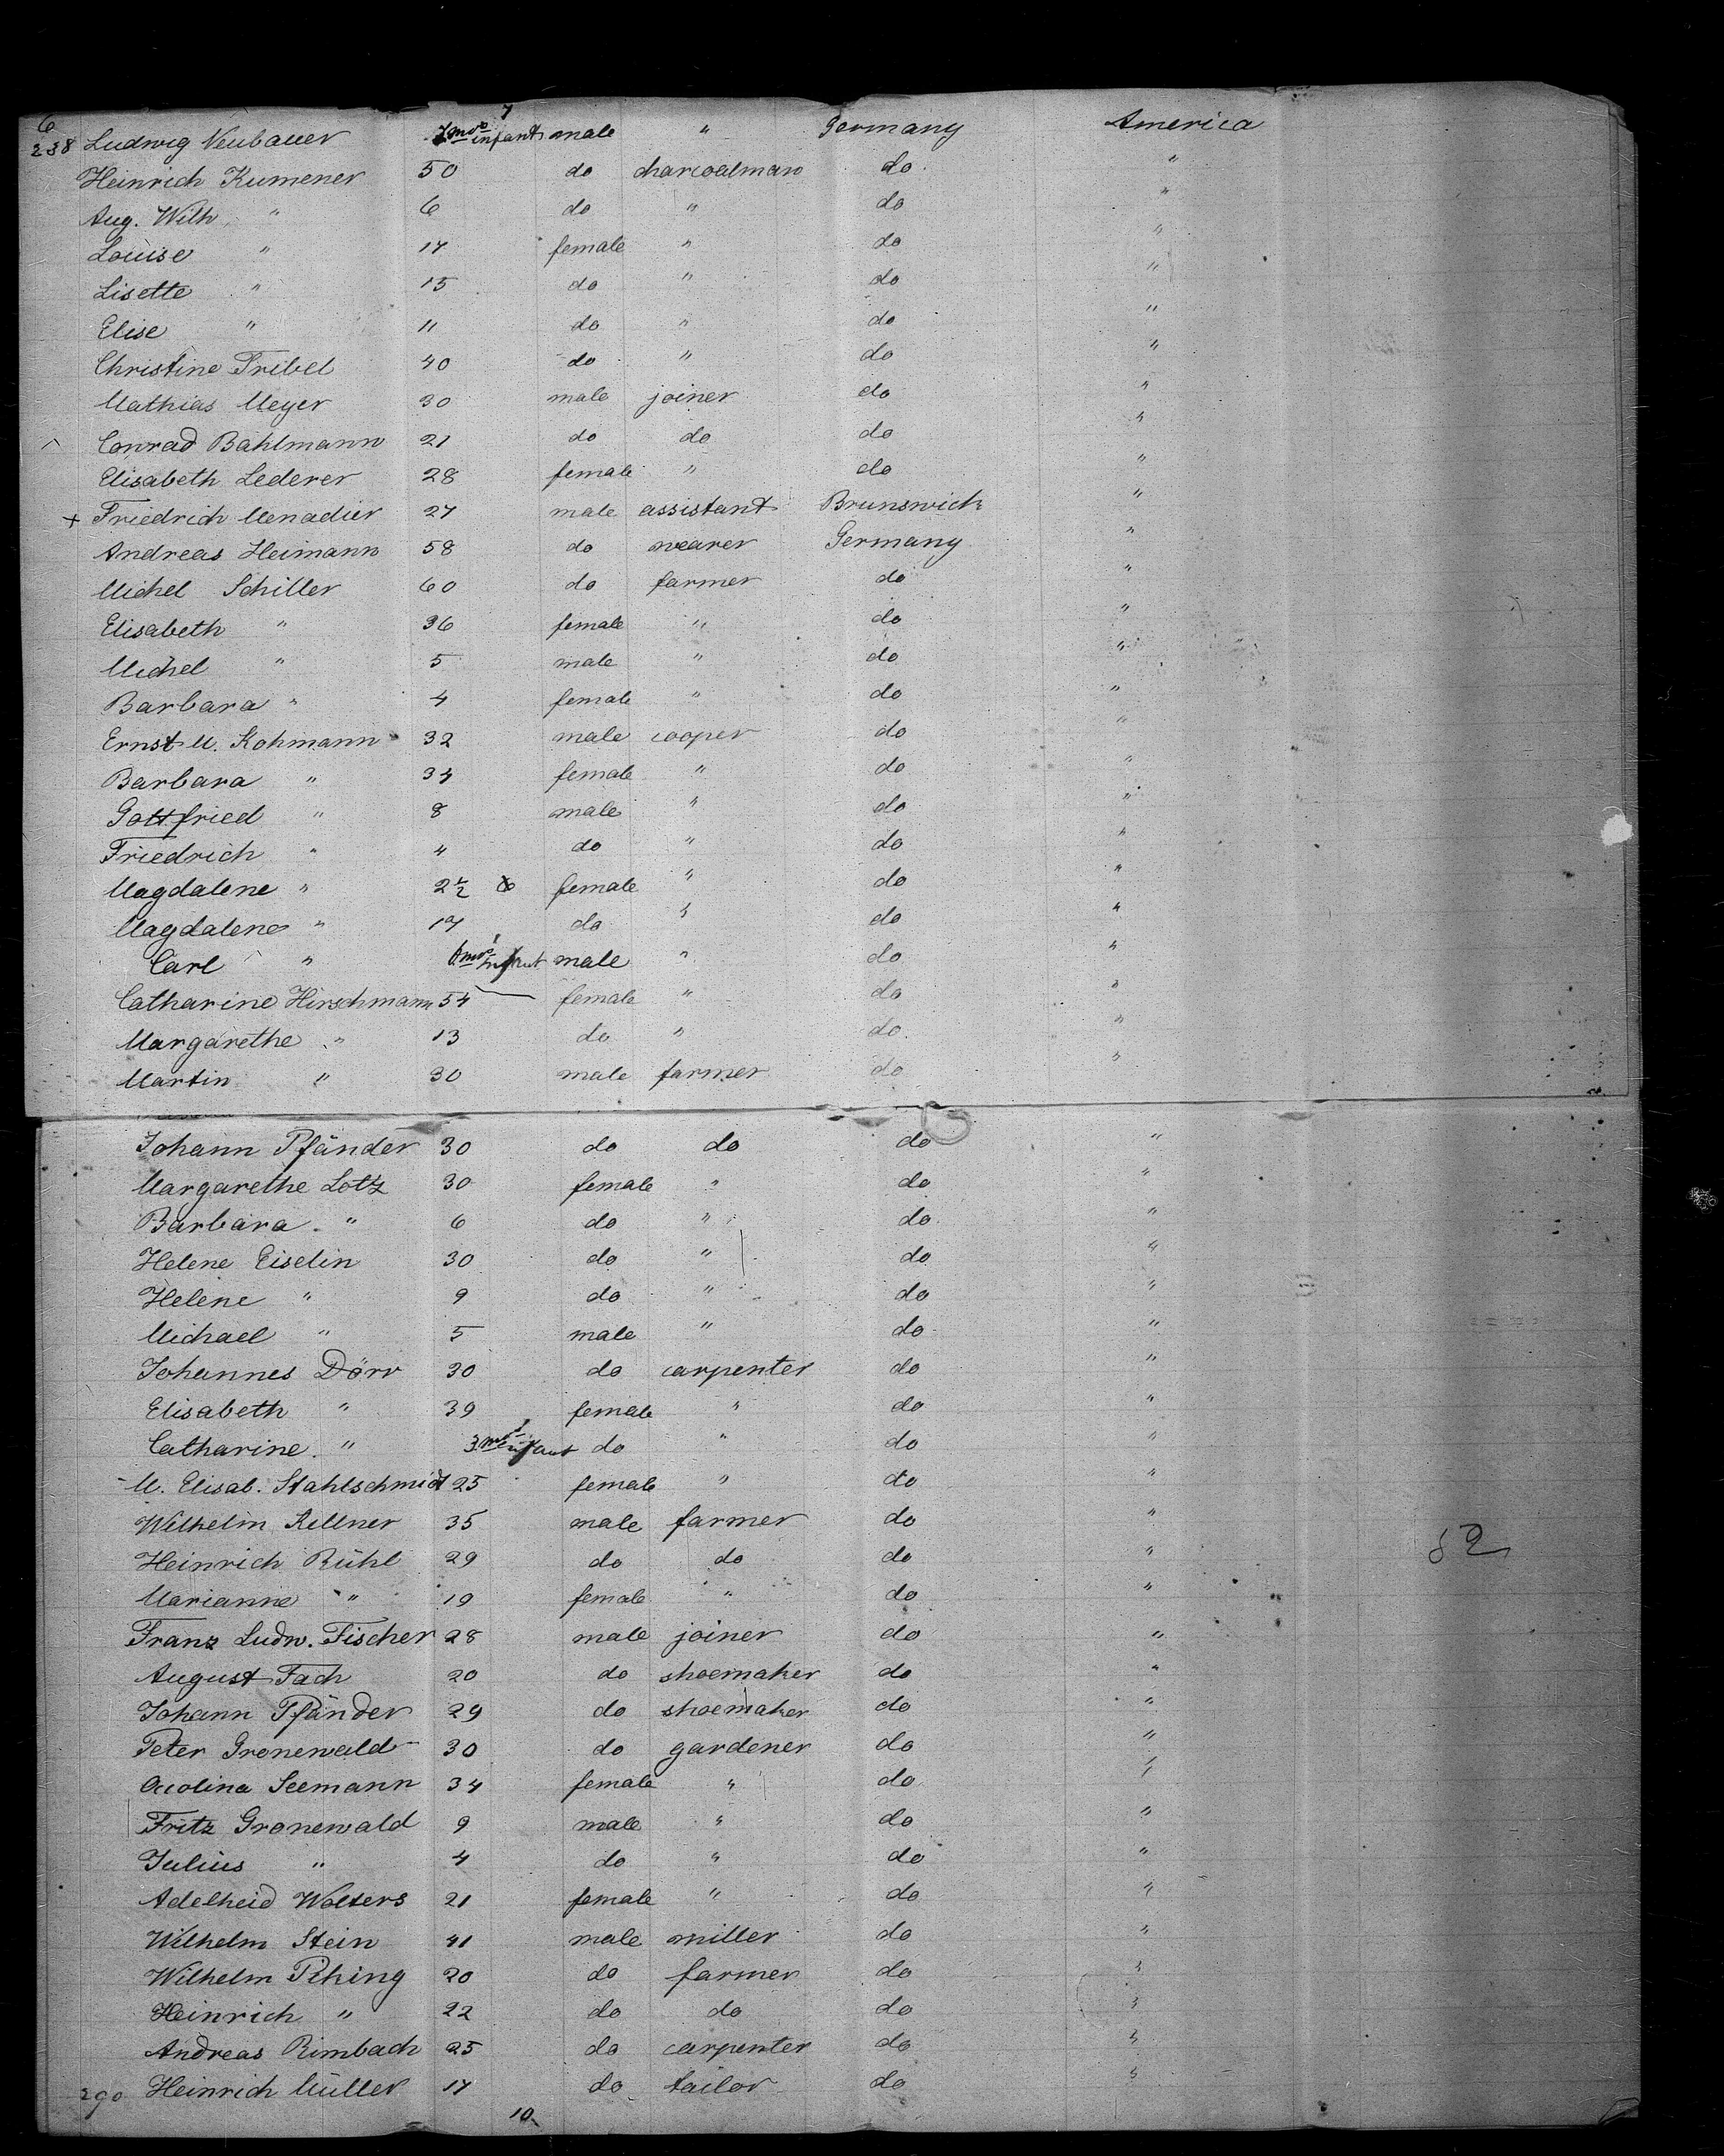 6 7
238 Ludwig Neubauer 7 mos infant male " Germany America
Heinrich Kumener 50 do charcoalman do "
Aug. Wilh " 6 do " do "
Louise " 17 female " do "
Lisette " 15 do " do "
Elise " 11 do " do "
Christine Tribel 40 do " do "
Mathias Meyer 30 male joiner do "
Conrad Bahlmann 21 do do do "
Elisabeth Lederer 28 female " do "
+ Friedrich Menadier 27 male assistant Brunswick "
Andreas Heimann 58 do wearer Germany "
Michel Schiller 60 do farmer do "
Elisabeth " 36 female " do "
Michel " 5 male " do "
Barbara " 4 female " do "
Ernst M. Kohmann 32 male cooper do "
Barbara " 34 female " do "
Gottfried " 8 male " do "
Friedrich " 4 do " do "
Magdalene " 2½ female " do "
Magdalene " 17 do " do "
Carl " 6 mos infant male " do "
Catharine Hirschmann 54 female " do "
Margarethe " 13 do " do "
Martin " 30 male farmer do "
Johann Pfänder 30 do do do "
Margarethe Lotz 30 female " do "
Barbara " 6 do " do "
Helene Eiselin 30 do " do "
Helene " 9 do " do "
Michael " 5 male " do "
Johannes Dörr 30 do carpenter do "
Elisabeth " 39 female " do "
Catharine " 3 mos infant do " do "
M. Elisab. Stahlschmidt 25 female " do "
Wilhelm Kellner 35 male farmer do "
Heinrich Rühl 29 do do do "
52
Marianne " 19 female " do "
Franz Ludw. Fischer 28 male joiner do "
August Fach 20 do shoemaker do "
Johann Pfänder 29 do shoemaker do "
Peter Gronewald 30 do gardener do "
Seemann 34 female " do "
Fritz Gronewald 9 male " do "
Julius " 4 do " do "
Adelheid Wolters 21 female " do "
Wilhelm Stein 41 male miller do "
Wilhelm 20 do farmer do "
Heinrich " 22 do do do "
Andreas Rimbach 25 do carpenter do "
290 Heinrich Müller 17 do tailor do "
10